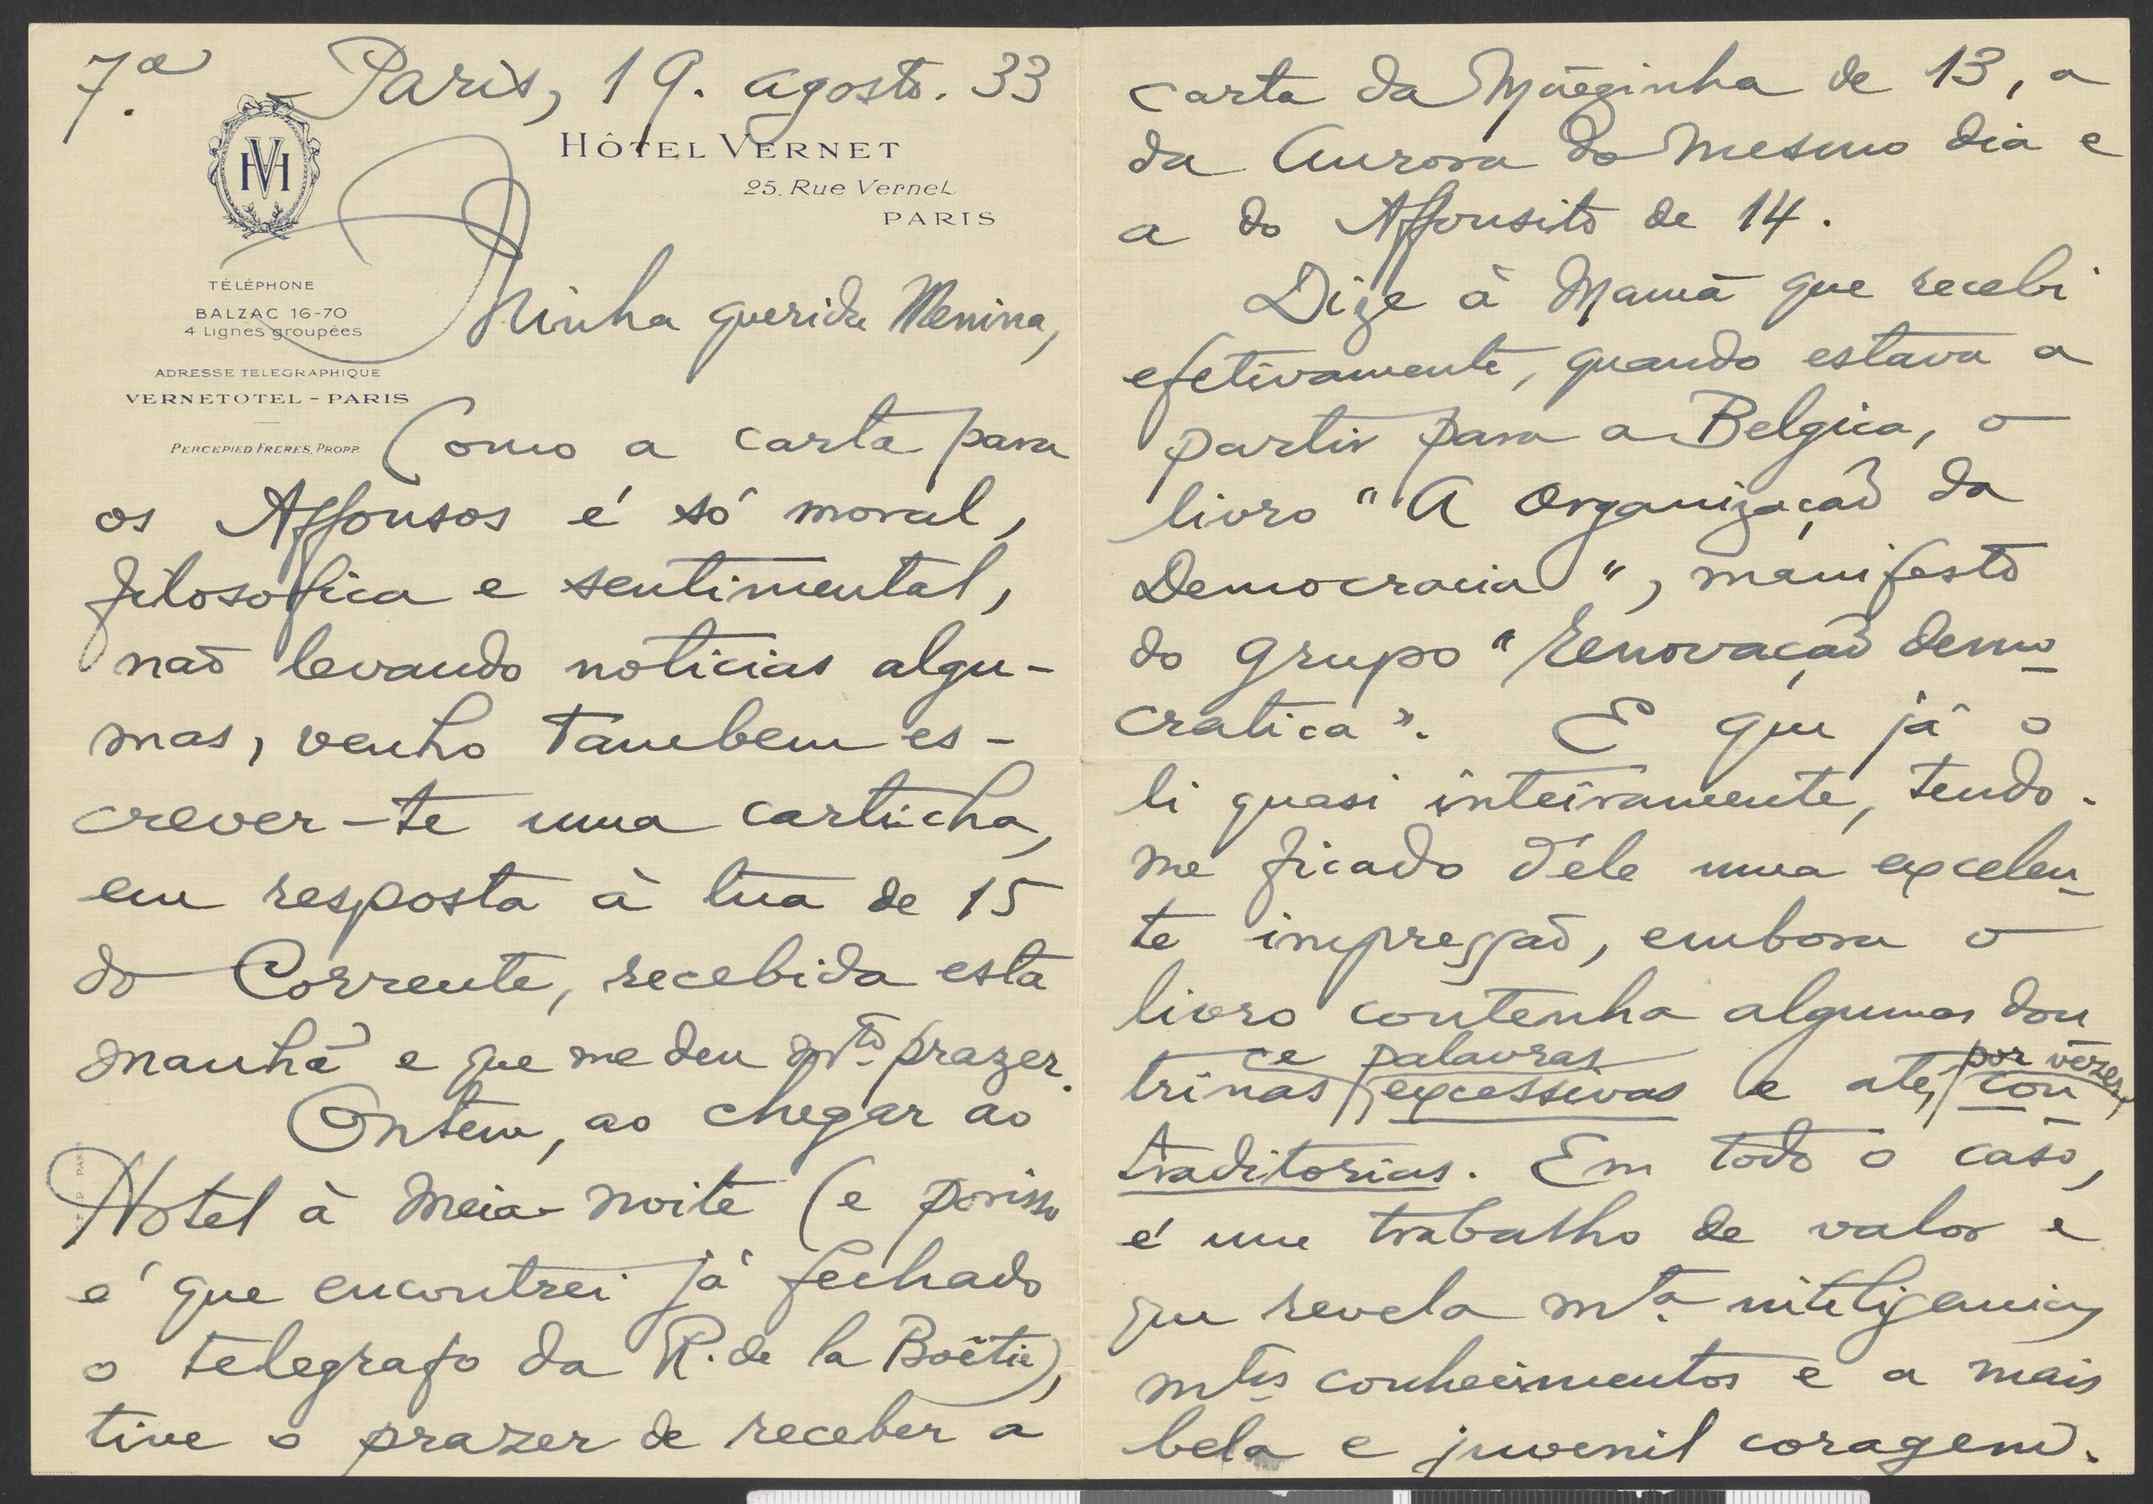 7.ª Paris, 19. agosto. 33
HÔTEL VERNET
25. Rue Vernet
PARIS
HVM
TÉLÉPHONE
BALZAC 16-70
4 Lignes groupées
ADRESSE TELEGRAPHIQUE
VERNETOTEL - PARIS
PERCEPIED FRERES, PROPP.
Minha querida Menina,
Como a carta para
os Affonsos é só moral,
filosofica e sentimental,
não levando noticias algu-
mas, venho tambem es-
crever-te uma carticha,
em resposta à tua de 15
do Corrente, recebida esta
manhã e que me deu mto. prazer.
Ontem, ao chegar ao
Hotel à meia-noite (e porisso
é que encontrei já fechado
o telegrafo da R. de la Boëtie),
tive o prazer de receber a
carta da Mãezinha de 13, a
da Aurora do mesmo dia e
a do Affonsito de 14.
Dize à Mamã que recebi
efetivamente, quando estava a
partir para a Belgica, o
livro "A Organização da
Democracia", manifesto
do grupo "Renovação demo-
cratica". E que já o
li quasi inteiramente, tendo-
me ficado dêle uma excelen-
te impressão, embora o
livro contenha algumas dou
trinas e palavras excessivas e até, por vêzes, con-
traditorias. Em todo o caso,
é um trabalho de valor e
que revela mta. inteligencia,
mtos conhecimentos e a mais
bela e juvenil coragem.